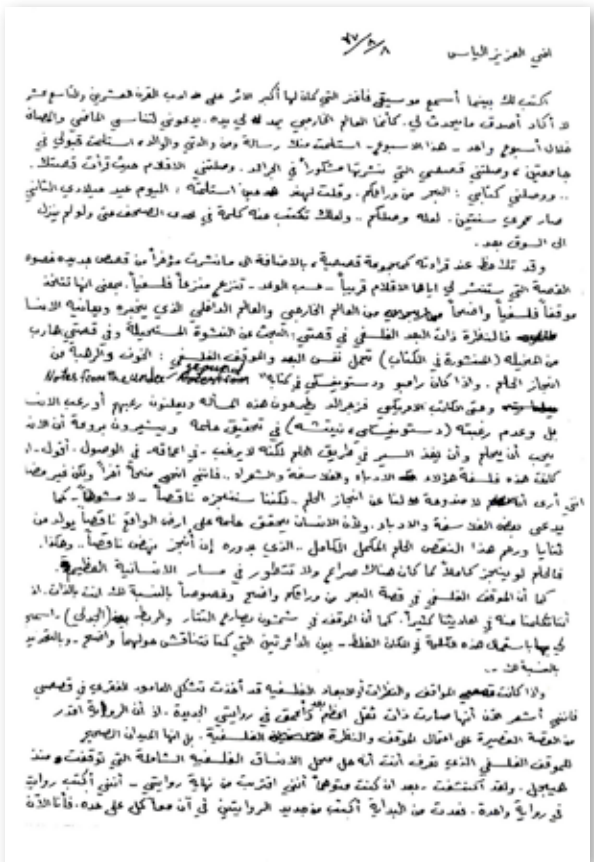 اخي العزيز الياس ٨/٣/٧٧
اكتب لك بينما أسمع موسيقى فاغنر التي كان لها أكبر الأثر على ادب القرن العشرين والتاسع عشر
لا أكاد أصدق ما يحدث لي. كأنما العالم الخارجي يمد لي يده. يدعوني لتناسي الماضي
خلال أسبوع واحد - هذا الاسبوع - استلمت منك رسالة ومن والدتي والوالد، استلمت قبولي في
جامعتين، وصلتني قصصي التي نشرتها مشكوراً في الرائد. وصلتني الاقلام حيث قرأت قصتك.
.. ووصلني كتابي: البحر من ورائكم. وقلت لهند هدهدين استلمته، اليوم عيد ميلادي الثاني
صار عمري سنتين. لعله وصلكم .. ولعلك تكتب عنه كلمة في احدى الصحف حتى ولو لم ينزل
الى السوق بعد.
وقد تلاحظ عند قراءته كمجموعة قصصية، بالاضافة الى ما نشرت مؤخراً من قصص جديده
القصة التي ستنشر لي اياها الاقلام قريباً - حسب الوعد - تنزع منزعاً فلسفياً. بمعنى انها تتخذ
موقفاً فلسفياً واضحاً من العالم الخارجي والعالم الداخلي الذي
فالنظرة ذات البعد الفلسفي في قصتي: البحث عن النشوة المستحيلة وفي قصتي هارب
من (المنشورة في الكتاب) تحمل نفس البعد والموقف الفلسفي: الخوف والرهبة من
انجاز الحلم. واذا كان رامبو ودستويفسكي في كتابه "Notes from the under ground
وحتى الكاتب الامريكي فتزجرالد يطرحون هذه المسألة ويعلنون رعبهم أو رعب
بل وعدم رغبته (دستويفسكي، نيتشه) في تحقيق حلمه ويشيرون بروعة أن
يجب أن يحلم وأن يغذ السير في طريق الحلم لكنه لا يرغب - في اعماقه - في الوصول. أقول -
كانت هذه فلسفة هؤلاء الادباء والفلاسفة والشعراء. فانني انتهج منهجاً آخراً ولكن غير
انني أرى انه لا مندوحة لنا عن انجاز الحلم. ولكننا سننجزه ناقصاً - لا مشوهاً - كما
يدعي بعض الفلاسفة والادباء. ولأن الانسان يحقق حلمه على ارض الواقع ناقصاً يولد من
ثنايا ورحم هذا النقص الحلم المكمل الكامل .. الذي بدوره إن أنجز ينهض ناقصاً .. وهكذا.
فالحلم لو ينجز كاملاً لما كان هناك صراع ولا تتطور في مسار الانسانية العظيم.
كما أن الموقف الفلسفي في قصة البحر من ورائكم واضح وخصوصاً بالنسبة لك انت بالذات. اذ
أننا تكلمنا عنه في احاديثنا كثيراً. كما أن الموقف في شمشون يصارع التتار والربط
لي بها باستعمال هذه الكلمة في المكان الغلط - بين الدائرتين التي كنا نتناقش حولهما واضح - وبالتحديد
بالنسبة لك ..
واذا كانت المواقف والنظرات أو الابعاد الفلسفية قد أخذت تشكل العامود الفقري في قصصي
فانني أشعر الآن أنها صارت ذات ثقل أعظم وأعمق في روايتي الجديدة. اذ أن الرواية اقدر
من القصة القصيرة على احتمال الموقف والنظرة الفلسفية. بل انها الميدان الصحيح
للموقف الفلسفي الذي تعرف أنت أنه حل محل الانساق الفلسفية الشاملة التي توقفت منذ
هيجل. ولقد اكتشفت، بعد ان كنت متوهماً أنني اقتربت من نهاية روايتي - أنني أكتب
في رواية واحدة. فعدت من البداية أكتب من جديد الروايتين في آن معاً كل على حده. فأنا الآن